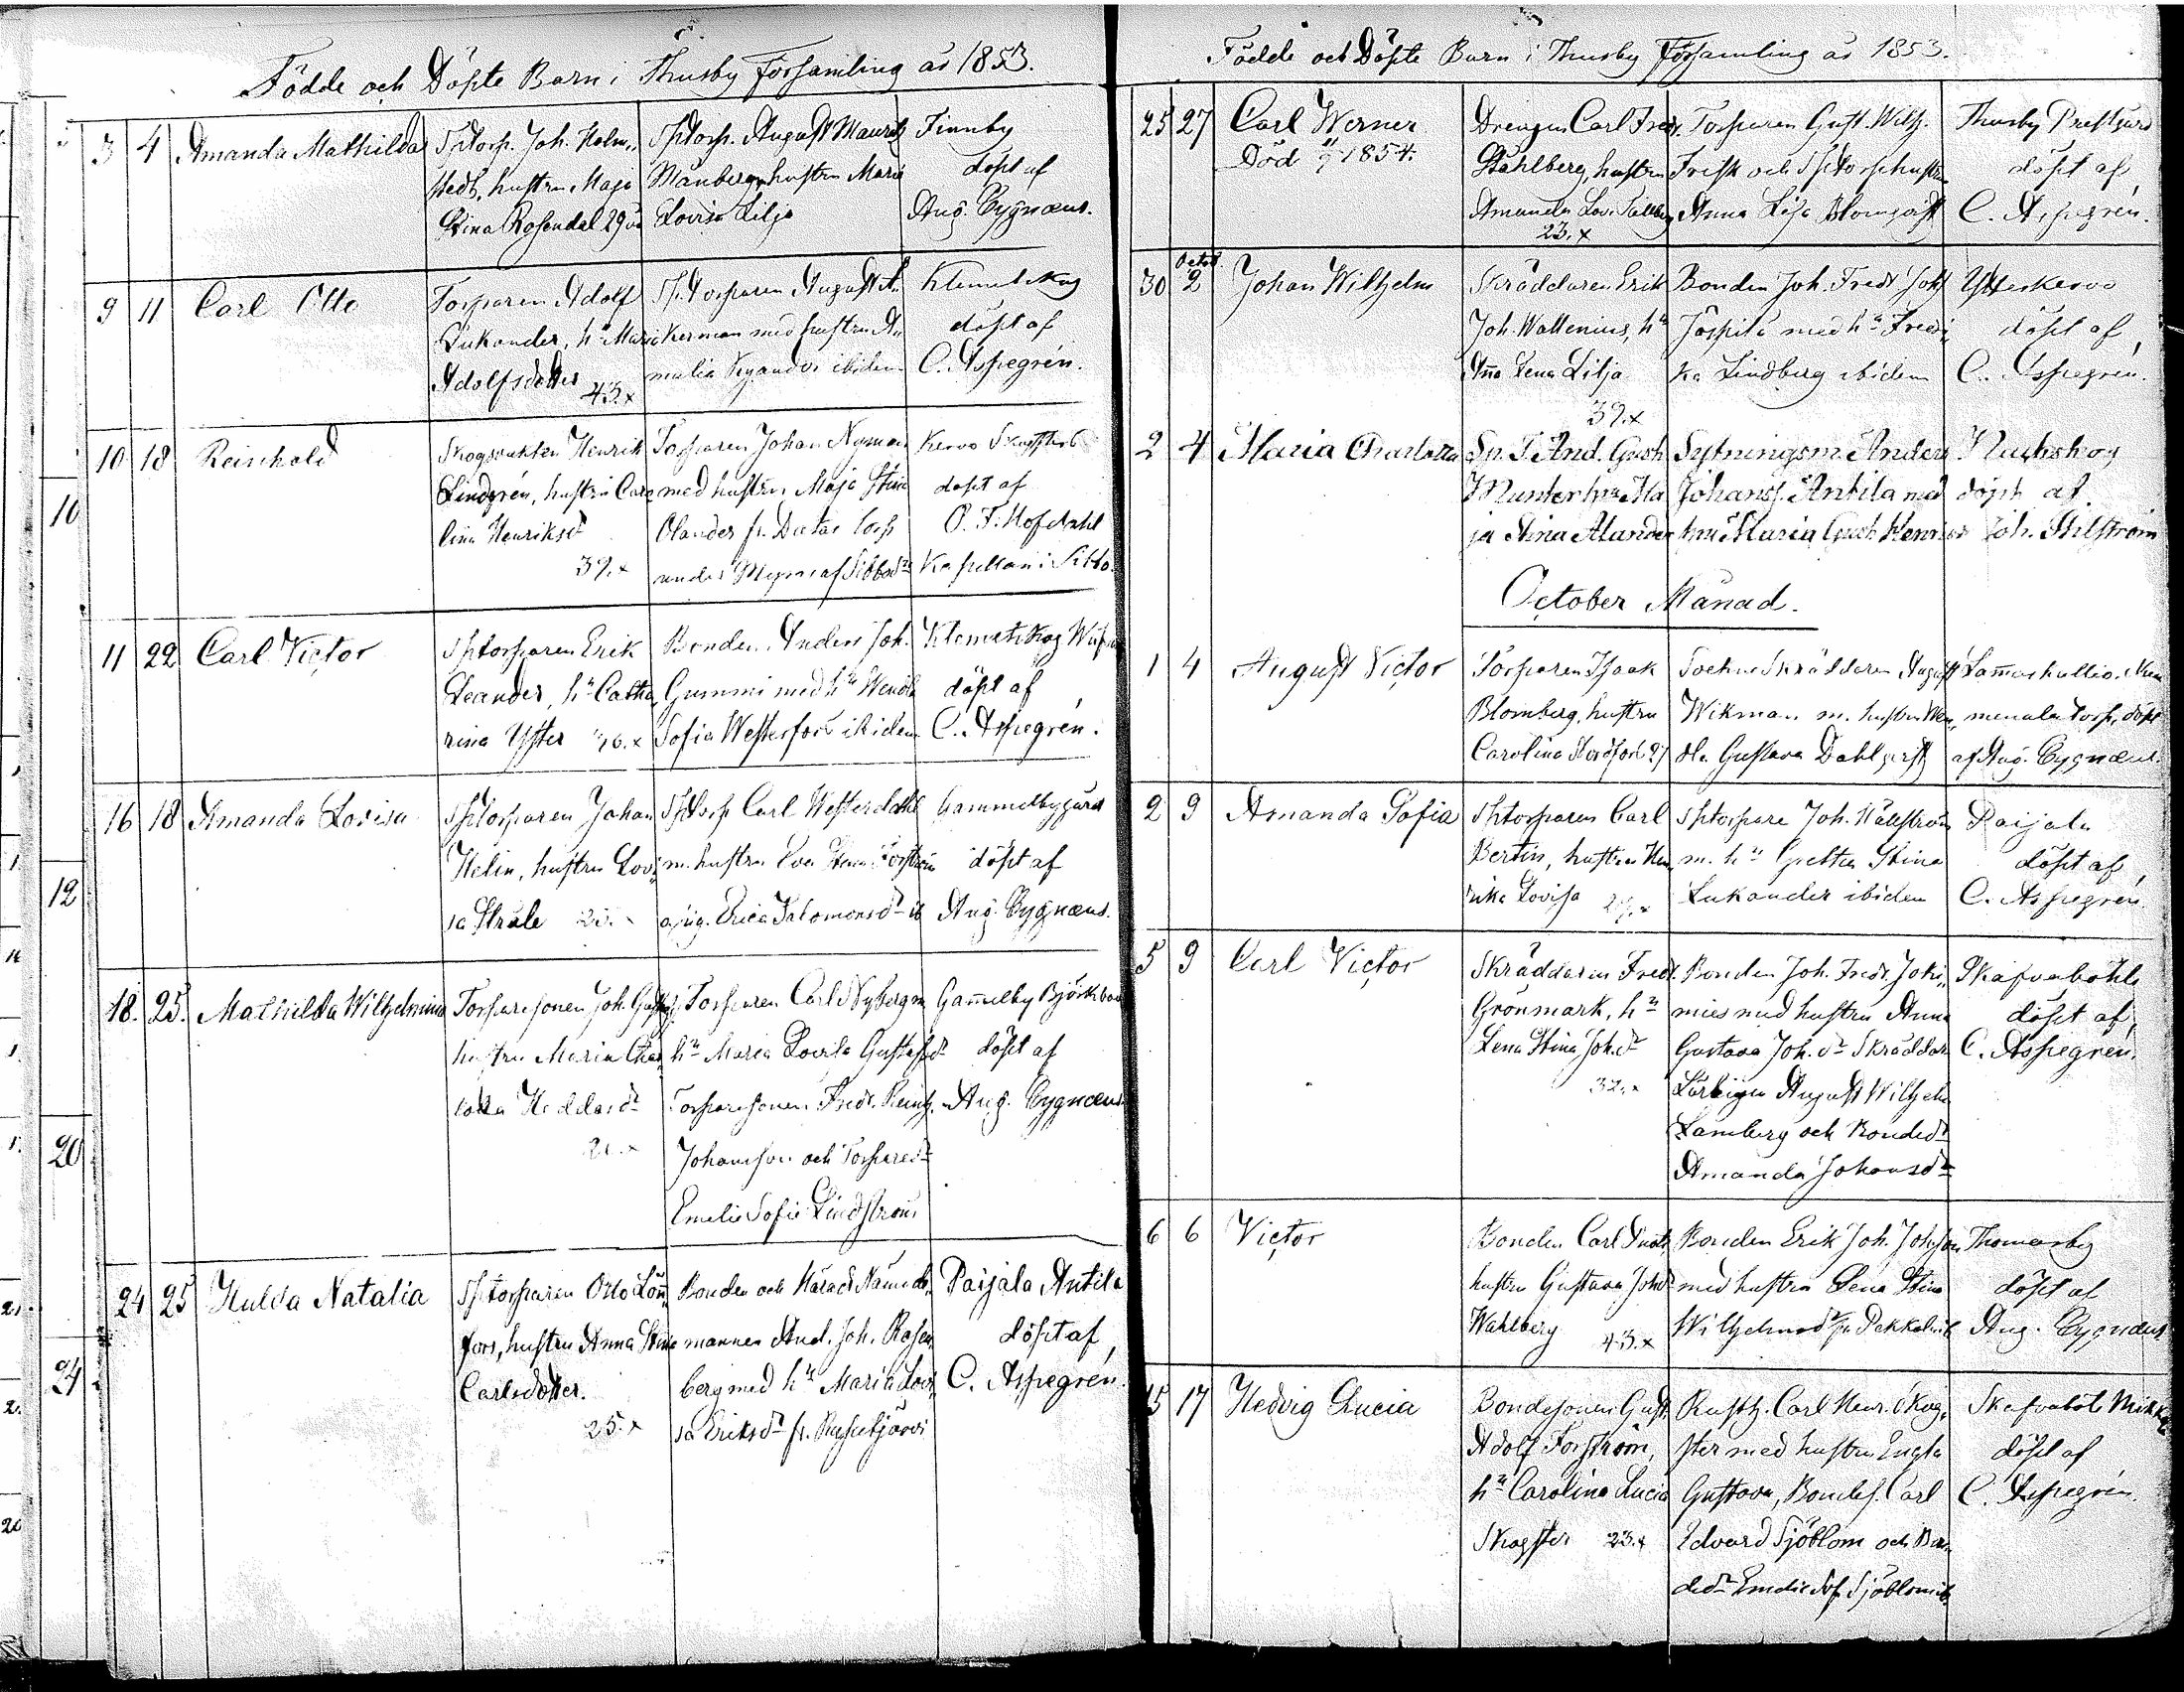 Födde och Döpte Barn i Thusby Församling år 1853.
3 4 Amanda Mathilda
Sptorp. Joh. Holm„
stedt, hustru Maja
Stina Rosendal 29
Sptorp. August Mauritz
Månberg, hustru Maria
Lovisa Lilja
Finnby
döpt af
Aug. Cygnæus.
9 11 Carl Otto
Torparen Adolf
Lukander, hu Maria
Adolfsdotter 43.x
Sp.torparen August A„
kerman med hustru A„
malia ibidem
Klemetskog
döpt af
C. Aspegrén.
10 18 Reinhold
Skogvakten Henrik
Lindgrén, hustru Caro
lina Henriksdr
39.x
Torparen Johan Nyman
med hustru Maja Stina
Olander fr.
under af Sibbo
Kervo
döpt af
O. F. Hofdahl
Kapellan i Sibbo.
11 22 Carl Victor
Sptorparen Erik
Leander, hu Catha
rina Yster 26.x
Bonden Anders Joh.
Gummi med hu Wendla
Sofia Westerfors ibidem
Klemetskog
döpt af
C. Aspegrén.
16 18 Amanda Lovisa
Sptorparen Johan
Helin, hustru Lovi
sa Stråle 25.x
Sptorp Carl Westerdahl
m. hustru Eva Stina Forström
o. pig. Erica Salomonsdr ib
Gammelbygård
döpt af
Aug. Cygnæus.
18. 25. Mathilda Wilhelmina
Torparesonen Joh. Gustafs.
hustru Maria Char
lotta Heddasdr
21.x
Torparen Carl Nyberg m
hu Maria Lovisa Gustafsdr
Torparesonen Fredr. Reinh.
Johansson och Torparedr
Emelie Sofie Lindström
Gam̄elby Björkbacka
döpt af
Aug. Cygnæus
24 25 Hulda Natalia
Sptorparen Otto Lön̄
fors, hustru Anna Stina
Carlsdotter.
25.x
Bonden och Härads Nämde„
mannen And. Joh. Rosen„
berg med hu Maria Lovi„
sa Eriksdr fr. Rusketjärvi
Paijala Antila
döpt af
C. Aspegrén.
10
12
20
24
Födde och Döpte Barn i Thusby Församling år 1853.
25 27 Carl Werner
Död 11/9 1854.
Drengen Carl Fredr.
Ståhlberg, hustru
Amanda Lov.
23.x
Torparen Gust. Wilh.
Frisk och Sptorphustru
Anna Lisa Blomqvist
Thusby Prestgård
döpt af
C. Aspegrén.
30 Octob. 2 Johan Wilhelm
Skräddaren Erik
Joh. Wallenius, hu
Añna Lena Lilja
39.x
Bonden Joh. Fredr. Joh
Jospila med hu Fredri„
ka Lindberg ibidem
Ytterkervo
döpt af
C. Aspegrén.
2 4 Maria Charlotta
Sp. T. And. Gust.
Munter hu Ma
ja Stina Alander
Sytningsm. Anders
Johanss. Antila med
hu Maria Gust. Henr
döpt af
Joh. Ahlström
October Månad.
1 4 August Victor
Torparen Isaak
Blomberg, hustru
Carolina Nordfors 27
Sockne Skräddaren August
Wikman m. hustru Wen„
dla Gustava Dahlqvist
torp, döpt
af Aug. Cygnæus.
2 9 Amanda Sofia
Sptorparen Carl
Bertin, hustru Hen
rika Lovisa 29.x
Sptorpare Joh. Wällström
m. hu Gretta Stina
Lukander ibidem
Paijala
döpt af
C. Aspegrén.
5 9 Carl Victor
Skräddaren Fredr.
Grönmark, hu
Lena Stina Joh.dr
32.x
Bonden Joh. Fredr. Joh„
med hustru Anna
Gustava Joh.dr Skräddar
Lärlingen August Wilhelm
Lamberg och Bondedr
Amanda Johansdr
Skafvaböhle
döpt af
C. Aspegrén.
6 6 Victor
Bonden Carl Gust.
hustru Gustava Joh.dr
Wahlberg 43.x
Bonden Erik Joh. Johsson
med hustru Lena Stina
Wilhelmsdr fr. Pekkola
Thomasby
döpt af
Aug. Cygnæus
15 17 Hedvig Lucia
Bondesonen Gust.
Adolf Forström,
hu Carolina Lucia
Skogster 23.x
Rusth. Carl Henr. Skog„
ster med hustru Engla
Gustava, Bondes. Carl
Edvard Sjöblom och Bon„
dedr Emelie Sof. Sjöblom ib.
Skafvaböle
döpt af
C. Aspegrén.